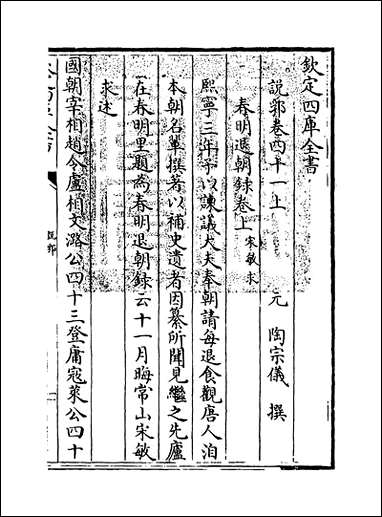 欽定四庫全書
說郛卷四十一上　元　陶宗儀　撰
春明退朝錄卷上　宋敏求
熙寧三年予以諫議大夫奉朝請每退食觀唐人洎
本朝名輩撰著以補史遺者因纂所聞見繼之先廬
在春明里題為春明退朝錄云十一月晦常山宋敏
求述
國朝宰相趙令盧相文潞公四十三登庸寇萊公四十
說郛